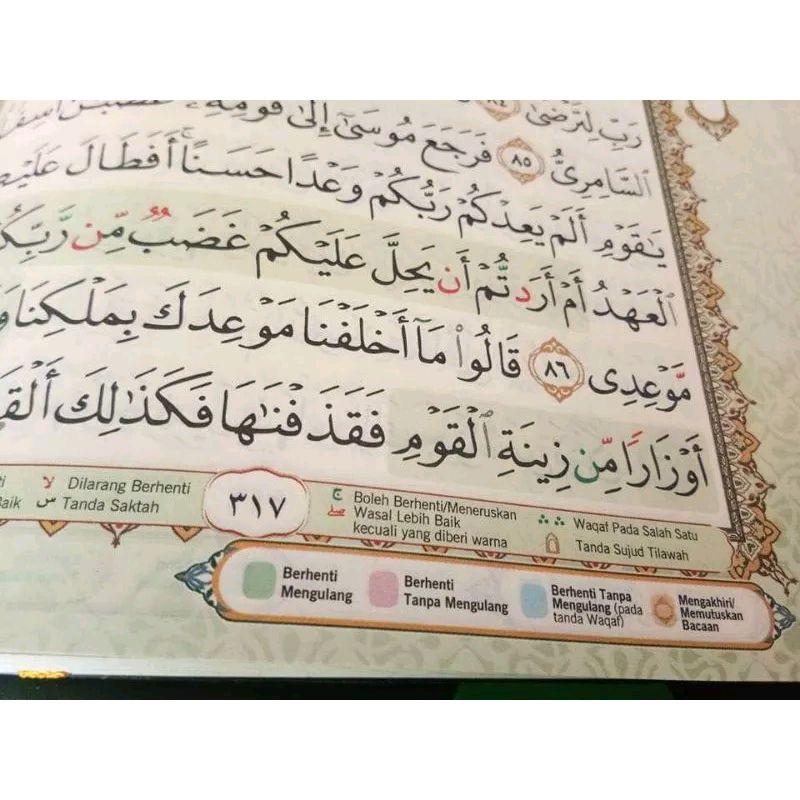 رَبِّ لِتَرْضَىٰ ٨٤
ٱلسَّامِرِىُّ ٨٥ فَرَجَعَ مُوسَىٰٓ إِلَىٰ قَوْمِهِۦ
يَٰقَوْمِ أَلَمْ يَعِدْكُمْ رَبُّكُمْ وَعْدًا حَسَنًا ۚ أَفَطَالَ
ٱلْعَهْدُ أَمْ أَرَدتُّمْ أَن يَحِلَّ عَلَيْكُمْ غَضَبٌ مِّن
مَّوْعِدِى ٨٦ قَالُوا۟ مَآ أَخْلَفْنَا مَوْعِدَكَ بِمَلْكِنَا
أَوْزَارًا مِّن زِينَةِ ٱلْقَوْمِ فَقَذَفْنَٰهَا فَكَذَٰلِكَ
لا Dilarang Berhenti
س Tanda Saktah
٣١٧
ج Boleh Berhenti/Meneruskan
صلى Wasal Lebih Baik
kecuali yang diberi warna
Waqaf Pada Salah Satu
Tanda Sujud Tilawah
Berhenti Mengulang
Berhenti Tanpa Mengulang
Berhenti Tanpa Mengulang (pada tanda Waqaf)
Mengakhiri/ Memutuskan Bacaan